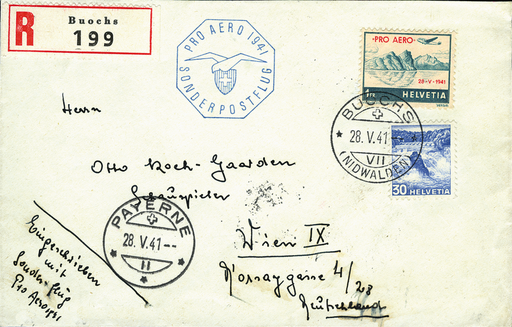 R
Buochs
199
PRO AERO 1941
SONDERPOSTFLUG
PRO AERO
28-V-1941
1 Fr.
HELVETIA
BUOCHS
28.V.41
VII
(NIDWALDEN)
30 HELVETIA
Herrn
Otto Koch-Gaarden
Schauspieler
Wien IX
4/23
Deutschland
PAYERNE
28.V.41--
II
Eingeschrieben
mit
Sonderflug
Pro Aero 1941